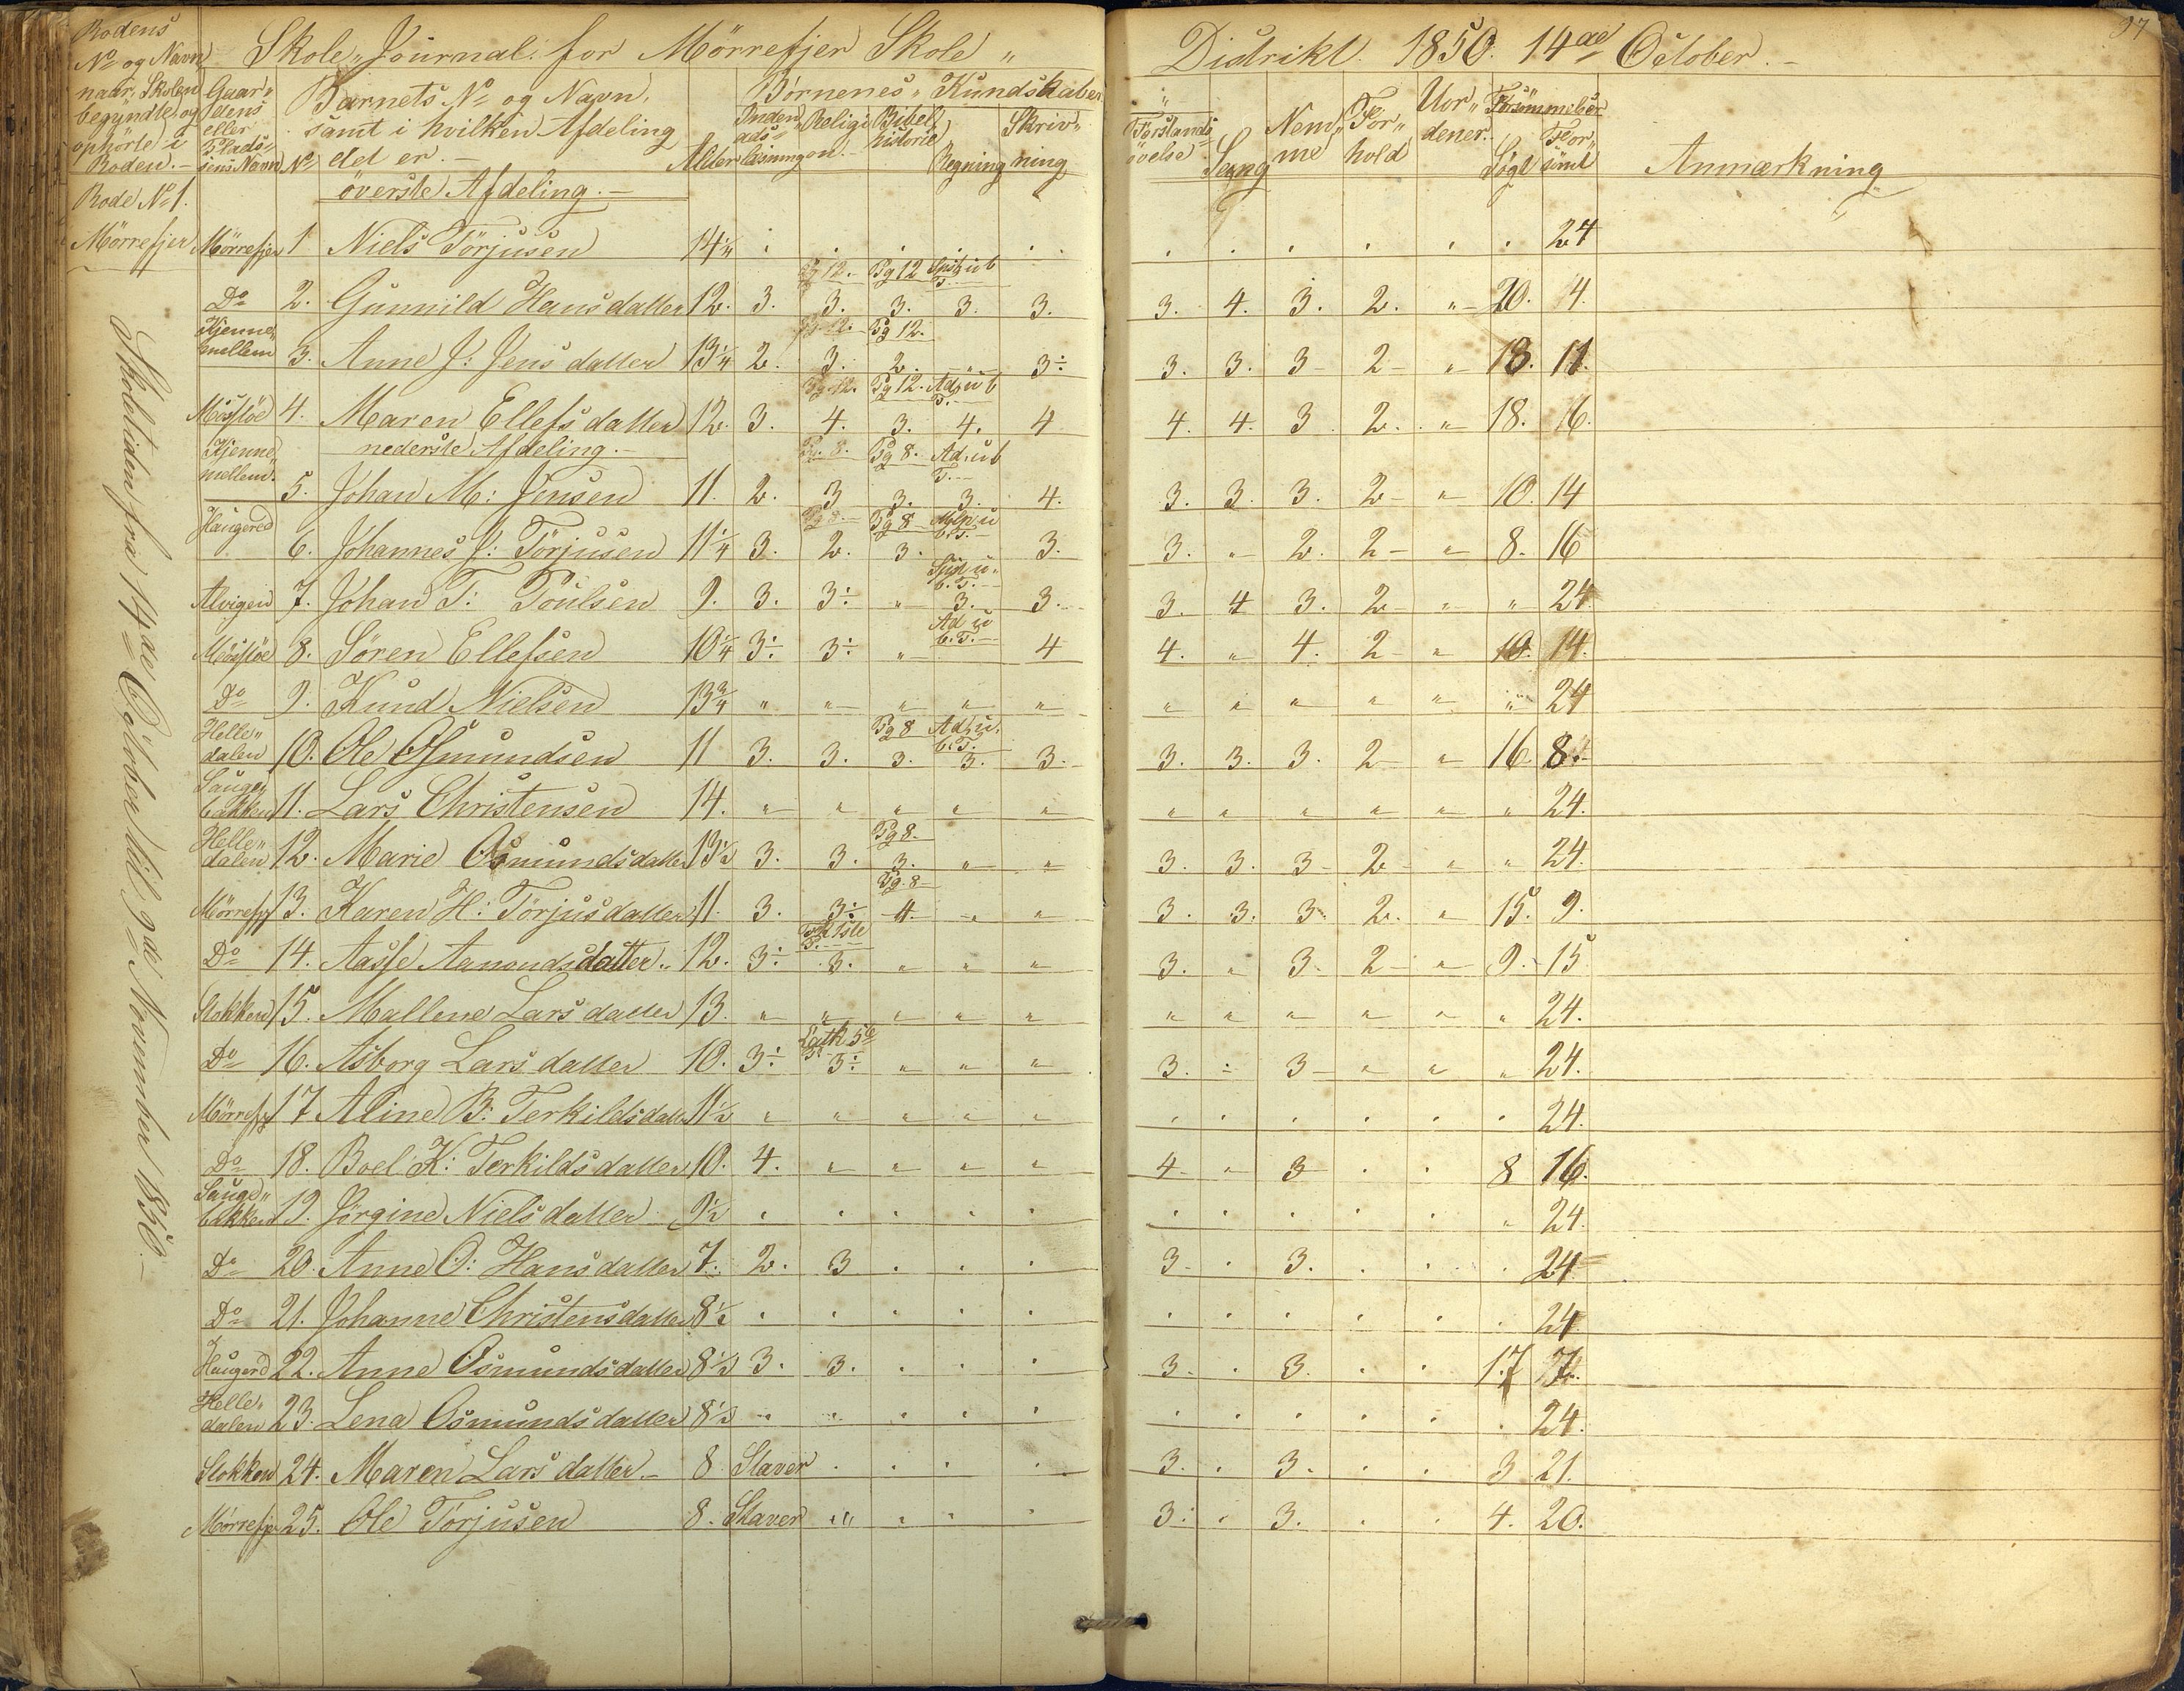 97
Skole„Journal. for Mörrefjer Skole „ Distrikt. 1850. 14de October.
Rodens No og Navn naar Skolen begyndte og ophörte i Roden.
Gaardens eller Pladsens Navn
No
Barnets No og Navn, samt i hvilken Afdeling det er.
Alder
Börnenes„ Kundskaber
Indenadslæsning
Religion
Bibelhistorie
Regning
Skrivning
Forstandsövelse
Sang
Nemme
Forhold
Uordener.
Forsömmelser
Sögt
Forsömt
Anmærkning
Rode No 1. överste Afdeling.
Mörrefjer Mörrefjer 1 Niels Törjusen 14¼ . . . . . . . . . . . 24
Pg 12. Pg 12
Do 2. Gunnild Hansdatter 12. 3. 3. 3. 3. 3. 3. 4. 3. 2. „ 20. 4.
Pg 12. Pg 12.
Kjennemellem 3. Anne J: Jensdatter 13¼ 2. 3. 2. „ 3÷ 3. 3. 3 2 „ 13. 11.
Pg 12. Pg 12. Ad. u b T.
4. Maren Ellefsdatter 12. 3. 4. 3. 4. 4 4. 4. 3 2. „ 18. 6.
nederste Afdeling.
Pg. 8. Pg 8. Ad. u b T.
Kjennemellem. 5. Johan M: Jensen 11. 2. 3 3. 3. 4. 3. 3. 3. 2 „ 10. 14
Pg 8. Pg 8 b. T.
Haugered 6. Johannes J: Törjusen 11¼ 3. 2. 3. 3. 3. „ 2. 2 „ 8. 16
b. T.
Alvigen 7. Johan T: Poulsen 9. 3. 3÷ „ 3. 3. 3. 4 3. 2 „ „ 24.
Ad u b. T.
8. Sören Ellefsen 10¼ 3÷ 3÷ „ 4 4. „ 4. 2 „ 10. 14.
Do 9. Knud Nielsen 13¾ „ „ „ „ „ „ „ „ „ „ „ 24
Pg 8 Ad. u. b. T.
Helledalen 10. Ole Osmundsen 11 3. 3. 3. 3. 3. 3. 3. 3. 2 „ 16 8.
Saugebakken 11. Lars Christensen 14. „ „ „ „ „ „ „ „ „ „ „ 24.
Pg 8.
Helledalen 12. Marie Osmundsdatter 13½ 3. 3. 3. „ „ 3. 3. 3 2 „ „ 24.
Pg. 8
Mörrefj 13. Karen H: Törjusdatter 11. 3. 3÷ 4. „ „ 3. 3. 3. 2. „ 15. 9.
Do 14. Aasse Aanondsdatter. 12. 3÷ 3. „ „ „ 3. „ 3. 2 „ 9. 15
Stokken 15. Mallene Larsdatter 13. „ „ „ „ „ „ „ „ „ „ „ 24.
Do 16. Asborg Larsdatter 10. 3÷ 3÷ „ „ „ 3. ÷ 3 „ „ „ 24.
Mörrefj 17 Aline B: Terkildsdatter 11½ „ „ „ „ „ . . . . . . 24.
Do 18. Boel K: Terkildsdatter 10. 4. „ „ „ „ 4 „ 3 . . 8 16.
Saugebakken 19. Jörgine Nielsdatter 9½ . . . . . . . . . . „ 24.
Do 20. Anne O: Hansdatter 7. 2. 3 . . . 3 . 3. . . . 24
Do 21. Johanne Christensdatter 8½ . . . . . . . . . . . 24
Haugerd 22. Anne Osmundsdatter 8½ 3. 3. . . . 3. . 3. . . 17 7.
Helledalen 23. Lena Osmundsdatter 8½ „ „ . . . . . . . . . 24.
Stokken 24. Maren Larsdatter. 8 Staver . . . . 3. . 3. . . 3 21.
Mörrefje 25. Ole Törjusen 8. Staver „ . . . 3. . 3. . . 4. 20.
Skoletiden fra 14de October til 9de November 1850.